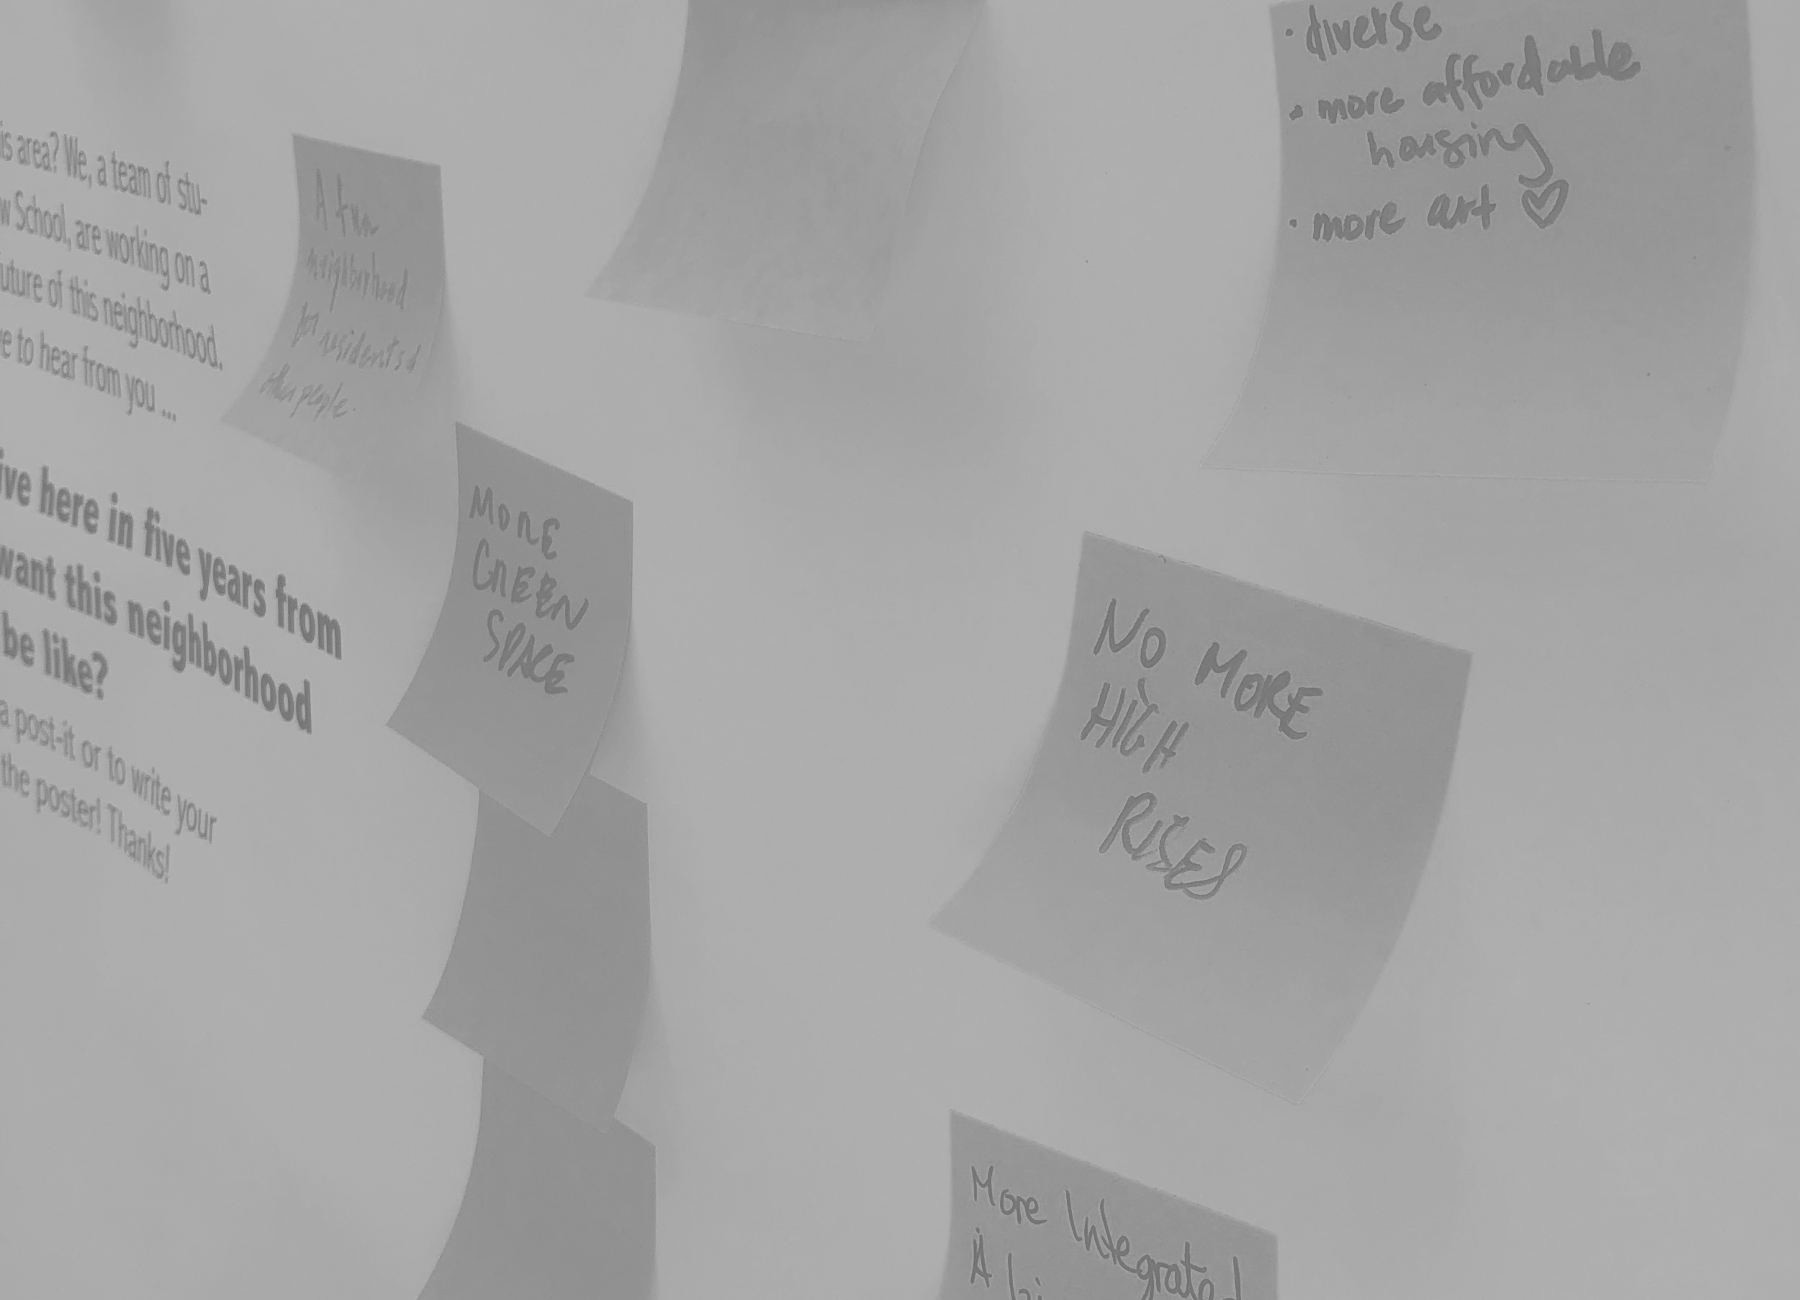 is area? We, a team of stu-
w School, are working on a
uture of this neighborhood.
e to hear from you ...
ive here in five years from
want this neighborhood
be like?
a post-it or to write your
the poster! Thanks!
A fun
neighborhood
for residents &
other people.
MORE
GREEN
SPACE
• diverse
• more affordable
housing
• more art ♡
NO MORE
HIGH
RISES
More Integrated
A